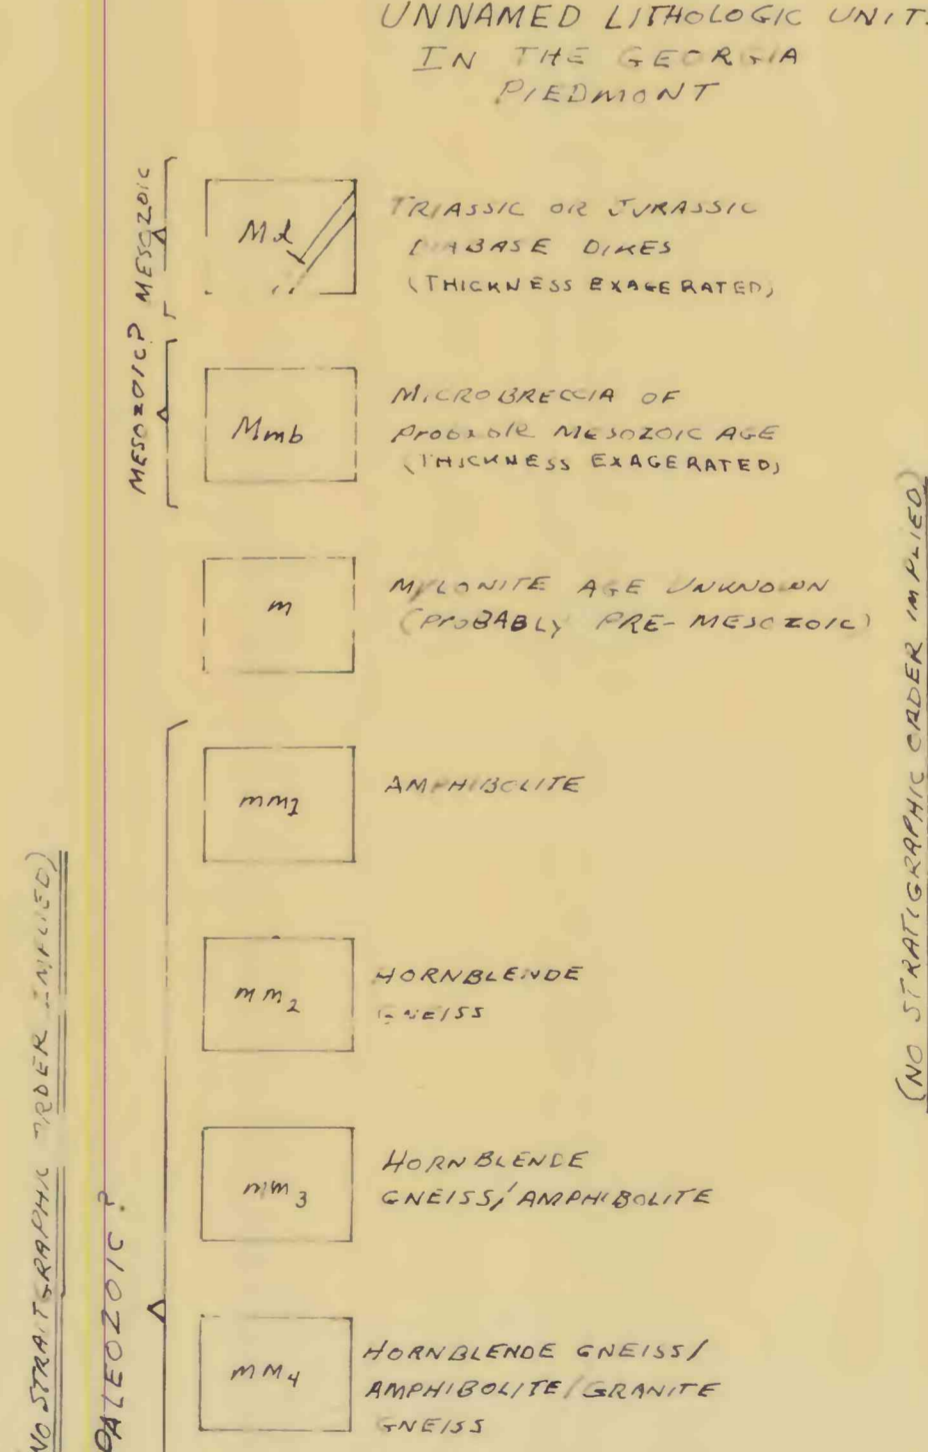 UNNAMED LITHOLOGIC UNIT
IN THE GEORGIA
PIEDMONT
MESOZOIC
Md
TRIASSIC OR JURASSIC
DIABASE DIKES
(THICKNESS EXAGERATED)
MESOZOIC?
Mmb
MICROBRECCIA OF
Probable MESOZOIC AGE
(THICKNESS EXAGERATED)
m
MYLONITE AGE UNKNOWN
(PrOBABLY PRE-MESOZOIC)
PALEOZOIC?
mm1
AMPHIBOLITE
mm2
HORNBLENDE
GNEISS
mm3
HORNBLENDE
GNEISS/AMPHIBOLITE
mm4
HORNBLENDE GNEISS/
AMPHIBOLITE/GRANITE
GNEISS
NO STRAITGRAPHIC ORDER IMPLIED)
(NO STRATIGRAPHIC ORDER IMPLIED)